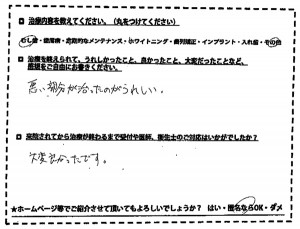 治療内容を教えてください。（丸をつけてください）
むし歯・歯周病・定期的なメンテナンス・ホワイトニング・歯列矯正・インプラント・入れ歯・その他
治療を終えられて、うれしかったこと、良かったこと、大変だったことなど、
感想をご自由にお書きください。
悪い部分が治ったのがうれしい。
来院されてから治療が終わるまで受付や医師、衛生士のご対応はいかがでしたか？
大変良かったです。
★ホームページ等でご紹介させて頂いてもよろしいでしょうか？ はい・匿名ならOK・ダメ